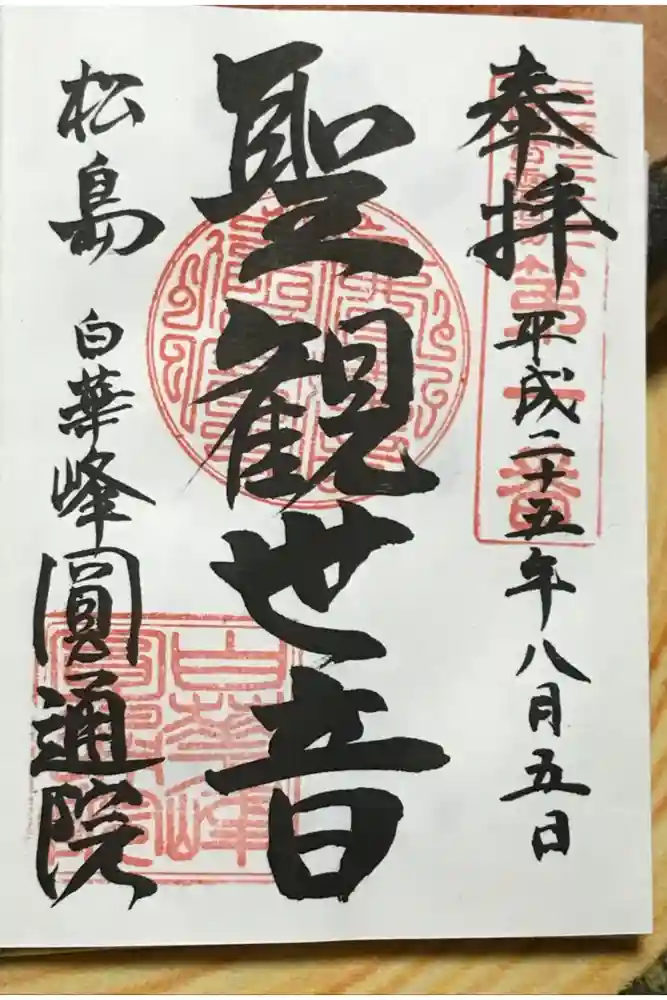 奉拝
平成二十五年八月五日
聖観世音
松島
白華峰
圓通院
第一番
白華峰